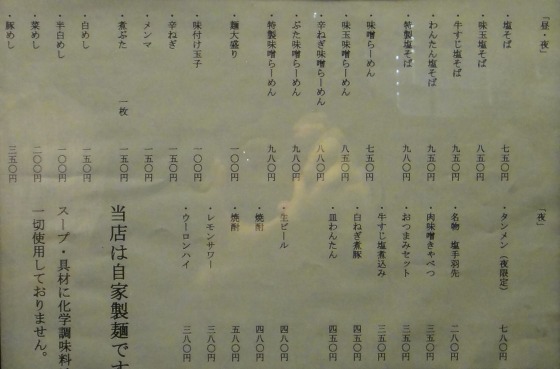 「昼・夜」
・塩そば 七五〇円
・味玉塩そば 八五〇円
・牛すじ塩そば 九五〇円
・わんたん塩そば 九五〇円
・特製塩そば 九八〇円
・味噌らーめん 七五〇円
・味玉味噌らーめん 八五〇円
・辛ねぎ味噌らーめん 八八〇円
・ぶた味噌らーめん 九八〇円
・特製味噌らーめん 九八〇円
・麺大盛り 一〇〇円
・味付け玉子 一〇〇円
・辛ねぎ 一五〇円
・メンマ 一五〇円
・煮ぶた 一枚 一五〇円
・白めし 一五〇円
・半白めし 一〇〇円
・菜めし 二〇〇円
・豚めし 三五〇円
「夜」
・タンメン（夜限定） 七八〇円
・名物 塩手羽先 二八〇円
・肉味噌きゃべつ 三五〇円
・おつまみセット 五五〇円
・牛すじ塩煮込み 三五〇円
・白ねぎ煮豚 四五〇円
・皿わんたん 四五〇円
・生ビール 四八〇円
・焼酎 四八〇円
・焼酎 五八〇円
・レモンサワー 三八〇円
・ウーロンハイ 三八〇円
当店は自家製麺です
スープ・具材に化学調味料
一切使用しておりません。